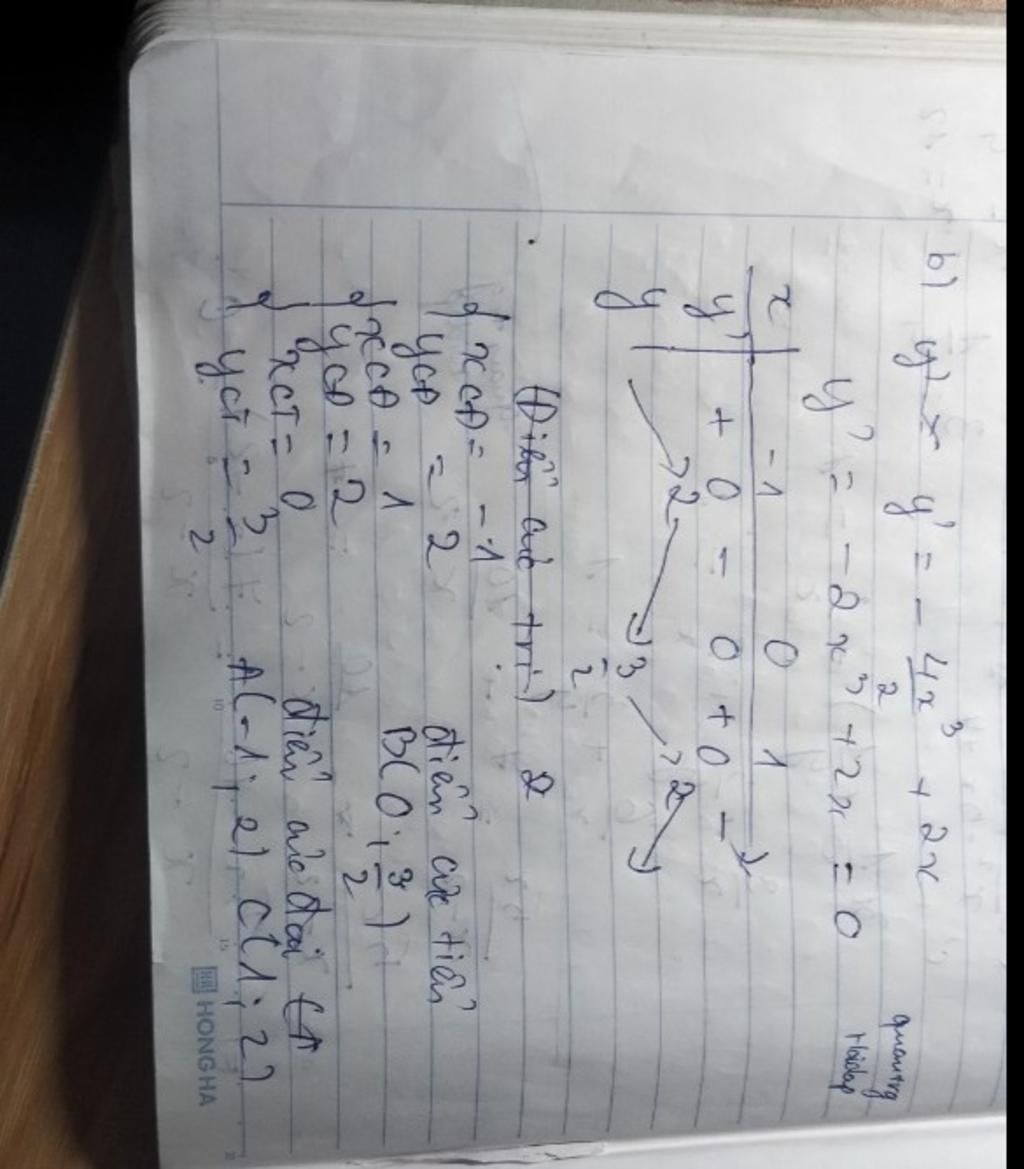 b) y' y' = - 4x³/2 + 2x
y' = - 2x³ + 2x = 0
x -1 0 1
y' + 0 - 0 + 0 -
y 2 3/2 2
(Điểm cực trị)
xCĐ = -1
yCĐ = 2
xCĐ = 1
yCĐ = 2
xCT = 0
yCT = 3/2
điểm cực tiểu
B(0; 3/2)
điểm cực đại
A(-1; 2) C(1; 2)
HONG HA